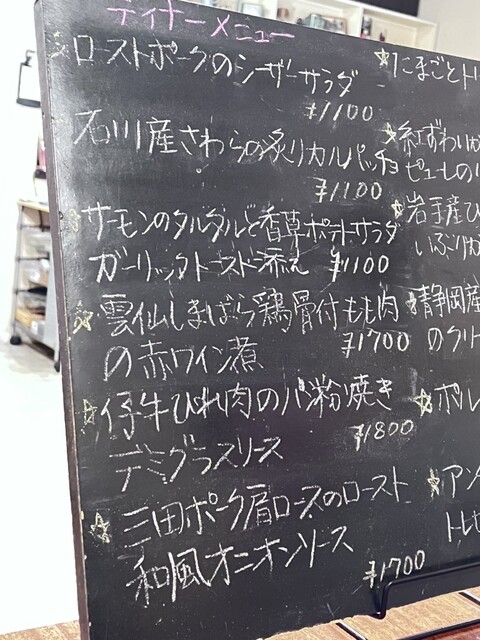 ディナーメニュー
ローストポークのシーザーサラダ
¥1100
石川産さわらの炙りカルパッチョ
¥1100
サーモンのタルタルと香草ポテトサラダ
ガーリックトースト添え ¥1100
雲仙しまばら鶏骨付もも肉
の赤ワイン煮 ¥1700
仔牛ひれ肉のパン粉焼き
デミグラスソース ¥1800
三田ポーク肩ロースのロースト
和風オニオンソース
¥1700
☆たまごとト
☆紅ずわいが
ピューレの
☆岩手産ひ
いぶりが
☆静岡産
のクリー
☆ポル
☆アン
トレ